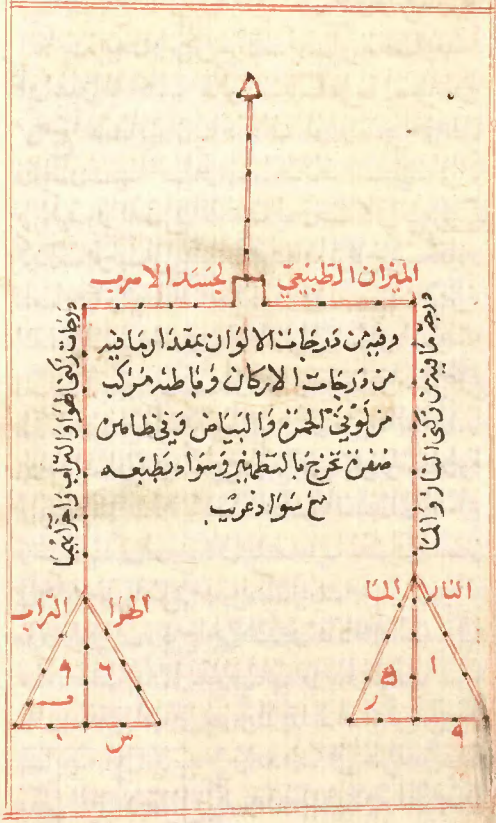 الميزان الطبيعي لجسد الاسرب
وفيه من درجات الالوان بمقدار ما فيه
من درجات الاركان وباطنه مركب
من لوني الحمرة والبياض وفي ظاهره
صفرة تخرج بالتطهير وسواد بطبعه
مع سواد غريب
درجة ما فيه من ركني النار والما
درجات ركني الهوا والتراب واجزائهما
النار الما
الهوا التراب